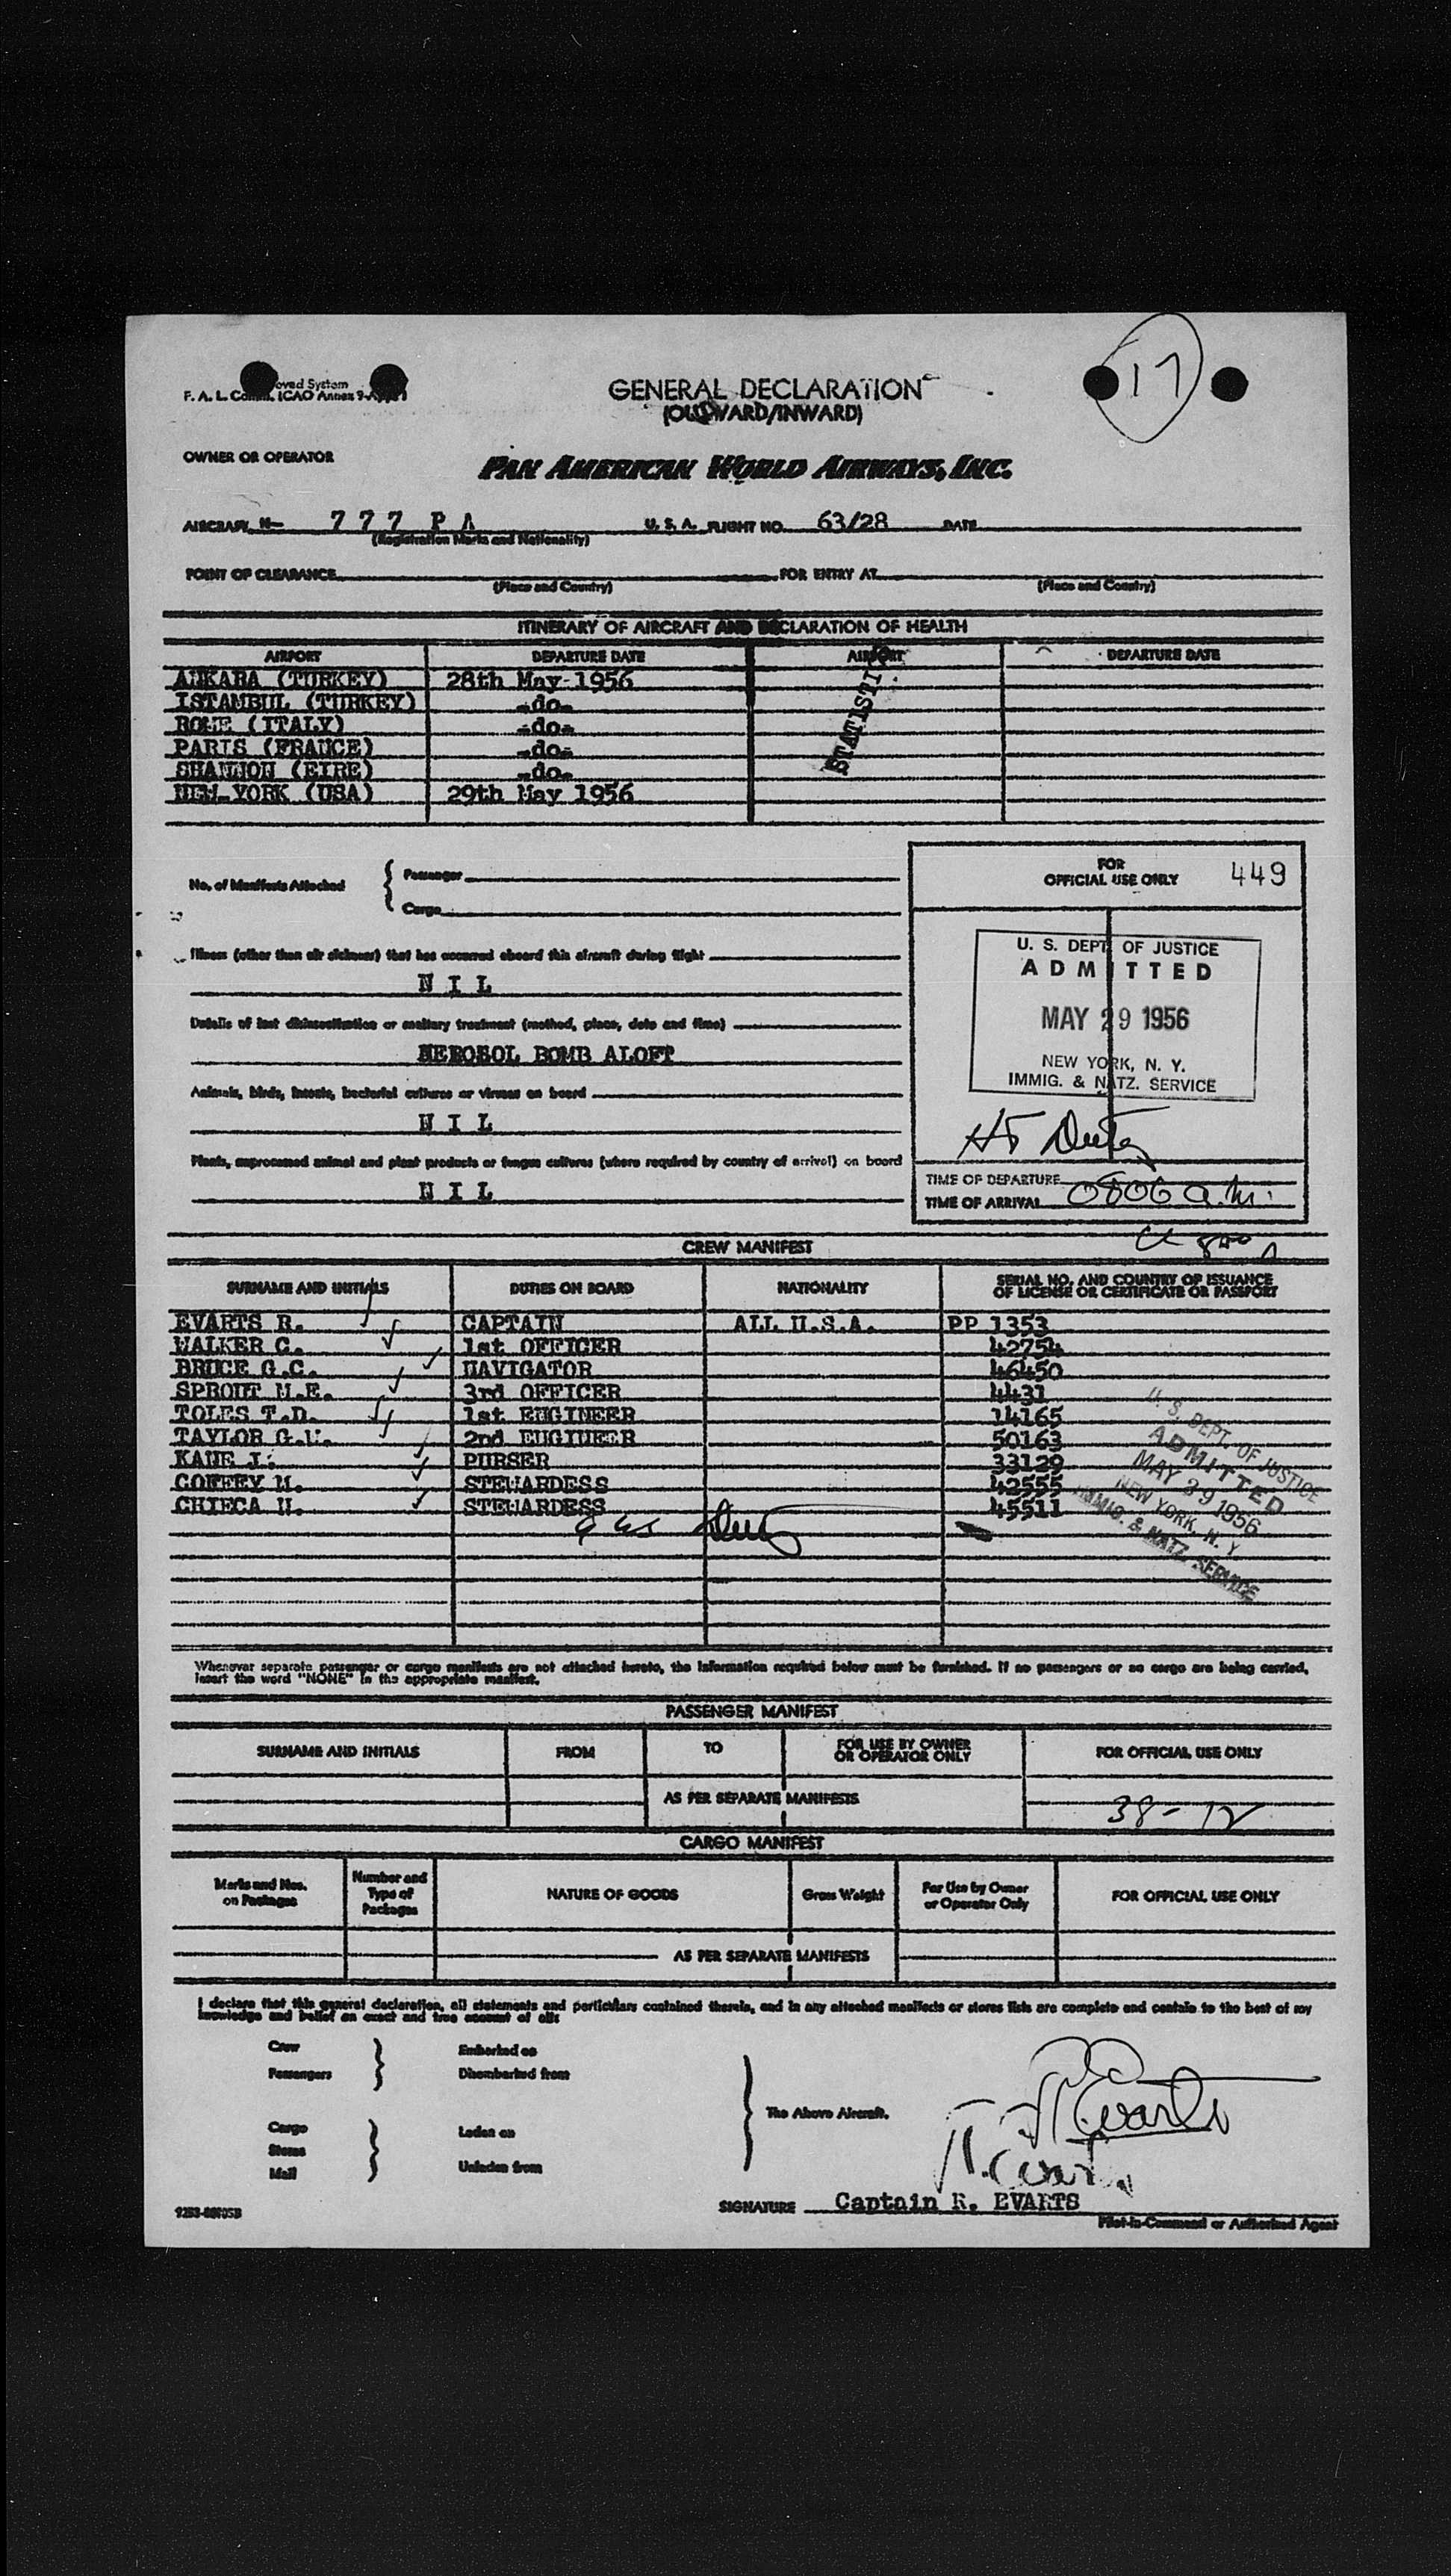 17
F. A. L. Comm. ICAO Annex 9-App. 1
GENERAL DECLARATION
(OUTWARD/INWARD)
OWNER OR OPERATOR
PAN AMERICAN WORLD AIRWAYS, INC.
AIRCRAFT N- 7 7 7 P A U. S. A. FLIGHT NO. 63/28 DATE
(Registration Marks and Nationality)
POINT OF CLEARANCE FOR ENTRY AT
(Place and Country) (Place and Country)
ITINERARY OF AIRCRAFT AND DECLARATION OF HEALTH
AIRPORT DEPARTURE DATE AIRPORT DEPARTURE DATE
ANKARA (TURKEY) 28th May 1956
ISTAMBUL (TURKEY) -do-
ROME (ITALY) -do-
PARIS (FRANCE) -do-
SHANNON (EIRE) -do-
NEW-YORK (USA) 29th May 1956
No. of Manifests Attached
Passenger
Cargo
FOR
OFFICIAL USE ONLY 449
Illness (other than air sickness) that has occurred aboard this aircraft during flight
N I L
Details of last disinsectization or sanitary treatment (method, place, date and time)
AEROSOL BOMB ALOFT
Animals, birds, insects, bacterial cultures or viruses on board
N I L
Plants, unprocessed animal and plant products or fungus cultures (where required by country of arrival) on board
N I L
U. S. DEPT. OF JUSTICE
ADMITTED
MAY 29 1956
NEW YORK, N. Y.
IMMIG. & NATZ. SERVICE
TIME OF DEPARTURE
TIME OF ARRIVAL 0806 a.m.
CREW MANIFEST
SURNAME AND INITIALS DUTIES ON BOARD NATIONALITY SERIAL NO. AND COUNTRY OF ISSUANCE
OF LICENSE OR CERTIFICATE OR PASSPORT
EVARTS R. CAPTAIN ALL U.S.A. PP 1353
WALKER C. 1st OFFICER 42754
BRUCE G.C. NAVIGATOR 46450
SPROUT M.E. 3rd OFFICER 4431
TOLES T.D. 1st ENGINEER 14165
TAYLOR G.U. 2nd ENGINEER 50163
KANE J. PURSER 33129
COFFEY M. STEWARDESS 42555
CHIECA N. STEWARDESS 45511
U. S. DEPT. OF JUSTICE
ADMITTED
MAY 29 1956
NEW YORK, N. Y.
IMMIG. & NATZ. SERVICE
Whenever separate passenger or cargo manifests are not attached hereto, the information required below must be furnished. If no passengers or no cargo are being carried,
insert the word "NONE" in the appropriate manifest.
PASSENGER MANIFEST
SURNAME AND INITIALS FROM TO FOR USE BY OWNER
OR OPERATOR ONLY FOR OFFICIAL USE ONLY
AS PER SEPARATE MANIFESTS
38-12
CARGO MANIFEST
Marks and Nos.
on Packages Number and
Type of
Packages NATURE OF GOODS Gross Weight For Use by Owner
or Operator Only FOR OFFICIAL USE ONLY
AS PER SEPARATE MANIFESTS
I declare that this general declaration, all statements and particulars contained therein, and in any attached manifests or stores lists are complete and contain to the best of my
knowledge and belief an exact and true account of all:
Crew Embarked on
Passengers Disembarked from
The Above Aircraft.
Cargo Laden on
Stores
Mail Unladen from
R Evarts
SIGNATURE Captain R. EVARTS
Pilot-in-Command or Authorized Agent